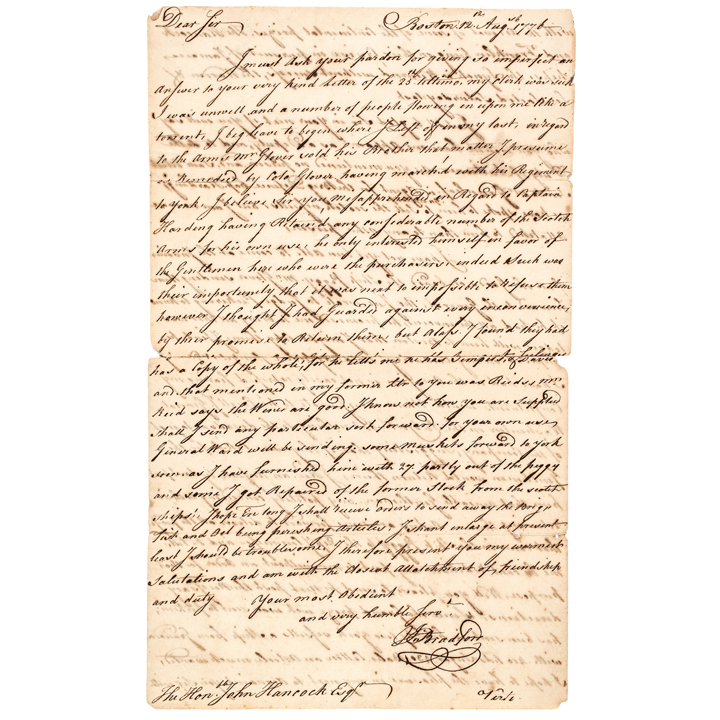 Dear Sir Boston 12th Augst 1776
I must ask your pardon for giving so imperfect an
Answer to your very kind Letter of the 23d Ultimo, my Clerk was sick
I was unwell and a number of people flowing in upon me like a
torrent, I beg leave to begin where I left off in my last, in regard
to the Arms Mr Glover sold his Brother that matter I presume
is Remedied by Colo Glover having march'd with his Regiment
to York. I believe Sir you Misapprehended in Regard to Captain
Harding having Retained any considerable number of the Scotch
Arms for his own use, he only interested himself in favor of
the Gentlemen here who were the purchasers, indeed such was
their importunity that it was next to impossible to Refuse them
however I thought I had Guarded against every inconvenience,
by their promise to Return them, but Alass I found they had
has a Copy of the whole, for he tells me he has
and that mentioned in my former Lttr to you was Reids, Mr
Reid says the Wines are good. I know not how you are Supplied
shall I send any particular sort forward. for your own use,
General Ward will be sending some Muskets forward to York
soon as I have furnished him with 27 partly out of the peggy
and some I got Repaired of the former Stock from the scotch
ships: I hope Ere long I shall receive orders to send away the Brigs
Fish and Oel being perishing Articles I shant enlarge at present
least I should be troublesome, I therefore present you my warmest
Salutations and am with the closest Attatchment of, friendship
and duty Your most Obedient
and very humble Servt
Jn Bradford
The Honble John Hancock Esqr